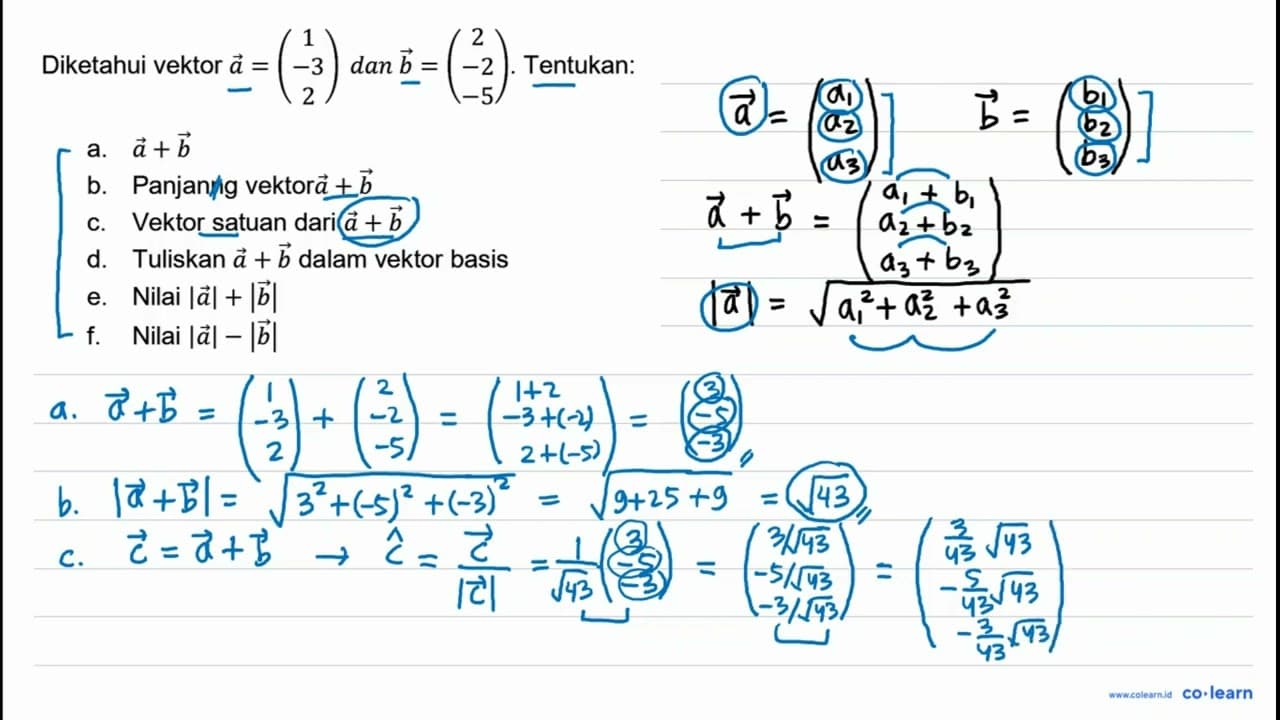 Diketahui vektor a⃗ = (1 −3 2) dan b⃗ = (2 −2 −5). Tentukan:
a. a⃗ + b⃗
b. Panjanng vektora⃗ + b⃗
c. Vektor satuan dari a⃗ + b⃗
d. Tuliskan a⃗ + b⃗ dalam vektor basis
e. Nilai |a⃗| + |b⃗|
f. Nilai |a⃗| − |b⃗|
a⃗ = (a₁ a₂ a₃) b⃗ = (b₁ b₂ b₃)
a⃗ + b⃗ = (a₁ + b₁ a₂ + b₂ a₃ + b₃)
|a⃗| = √(a₁² + a₂² + a₃²)
a. a⃗ + b⃗ = (1 −3 2) + (2 −2 −5) = (1+2 −3+(−2) 2+(−5)) = (3 −5 −3)
b. |a⃗ + b⃗| = √(3² + (−5)² + (−3)²) = √(9+25+9) = √43
c. c⃗ = a⃗ + b⃗ → ĉ = c⃗/|c⃗| = 1/√43 (3 −5 −3) = (3/√43 −5/√43 −3/√43) = (3/43 √43 −5/43 √43 −3/43 √43)
www.colearn.id co·learn